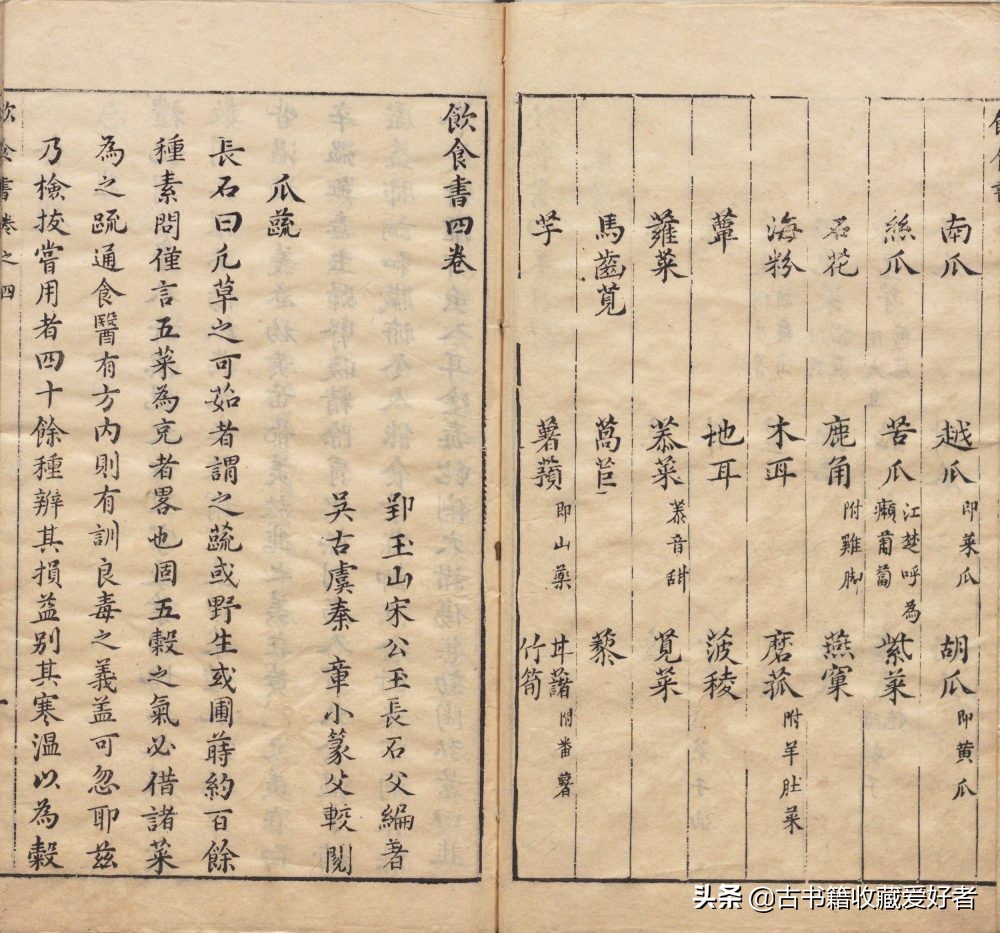 南瓜 越瓜 即菜瓜 胡瓜 即黄瓜
絲瓜 苦瓜 江楚呼為癩葡萄 紫菜
石花 鹿角 附雞脚 燕窠
海粉 木耳 磨菰 附羊肚菜
蕈 地耳 菠稜
蕹菜 菾菜 菾音甜 莧菜
馬齒莧 萵苣 藜
芋 薯蕷 即山藥 甘藷 即番薯
竹筍
飲食書四卷
郢玉山宋公玉長石父編著
吳古虞秦人章小篆父較閱
瓜蔬
長石曰凡草之可茹者謂之蔬或野生或圃蒔約百餘
種素問僅言五菜為充者畧也固五穀之氣必借諸菜
為之疏通食醫有方內則有訓良毒之義盖可忽耶兹
乃檢拔嘗用者四十餘種辨其損益别其寒溫以為穀
飲食書卷之四
头条@古书籍收藏爱好者